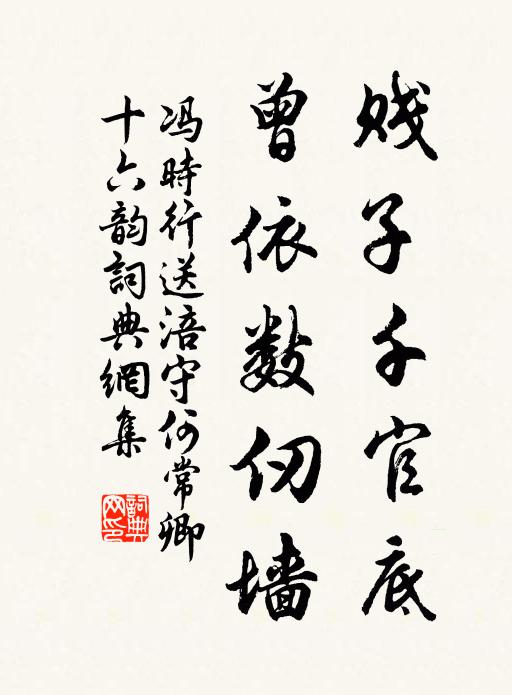 贱子千官底
曾依数仞墙
冯時行送涪守何常卿
十六韵詞典網集
詞典网印